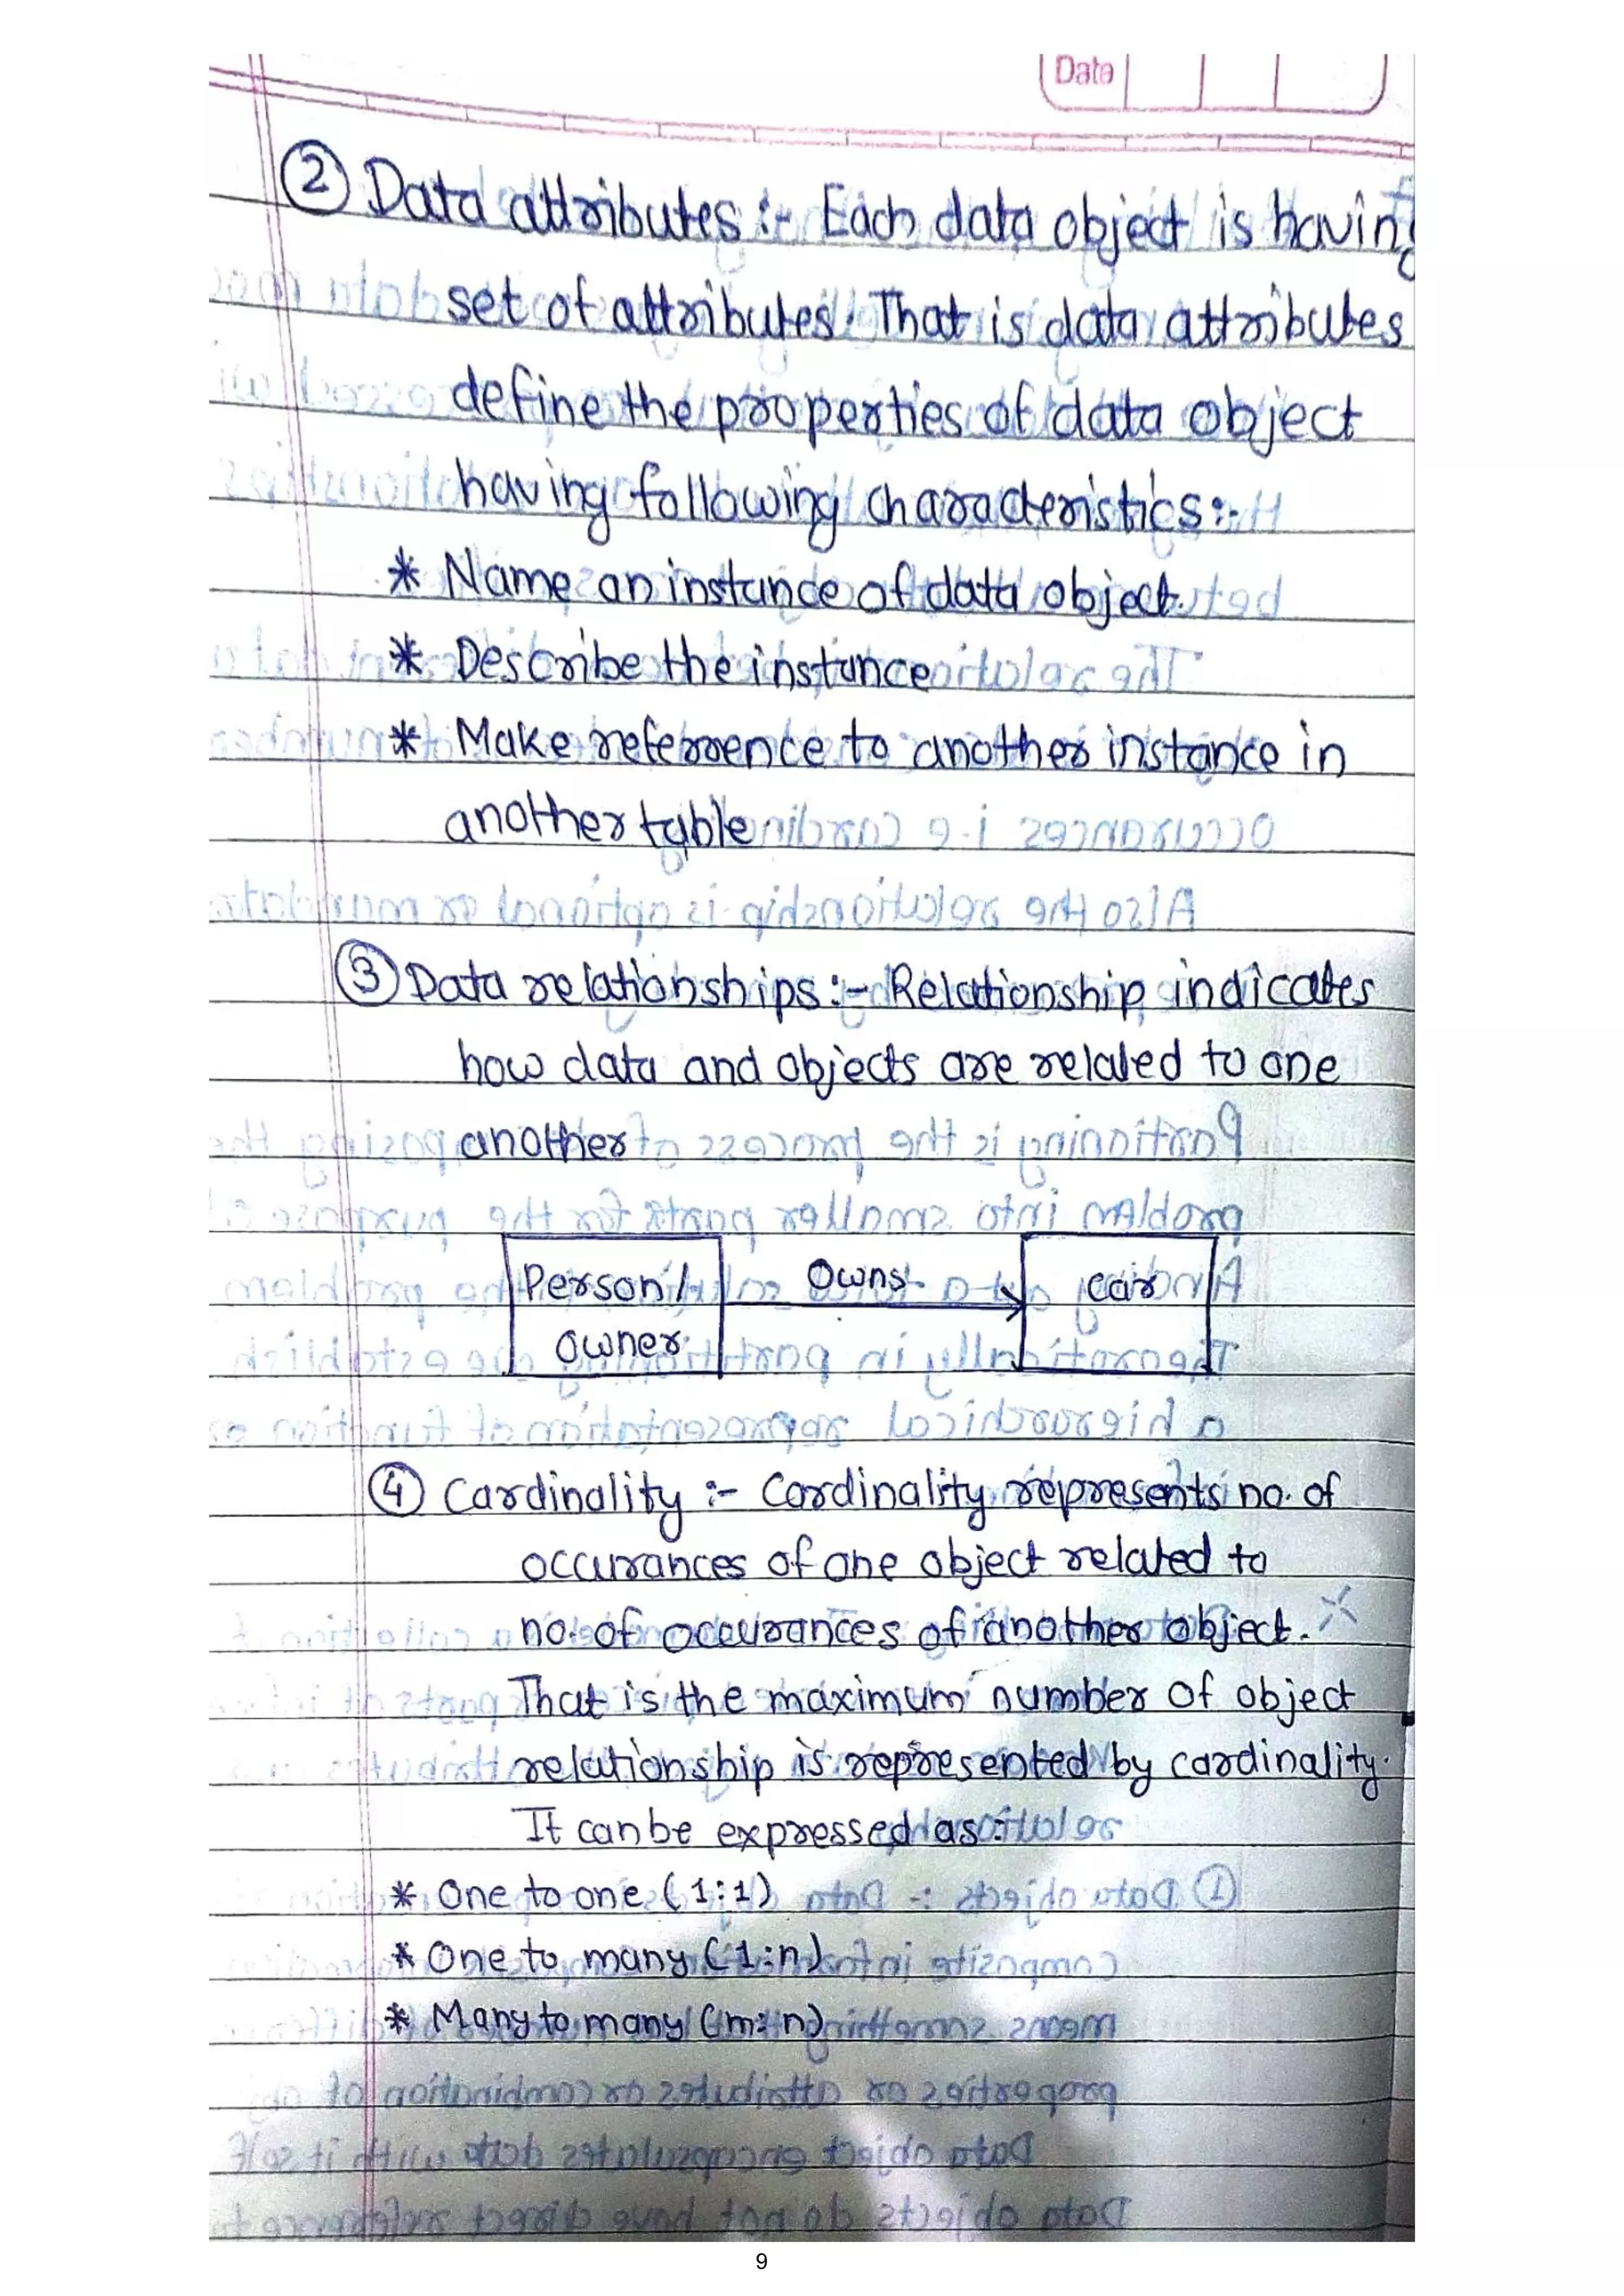 Date
② Data attributes :- Each data object is having
set of attributes. That is data attributes
define the properties of data object
having following characteristics :-
* Name an instance of data object.
* Describe the instance
* Make reference to another instance in
another table
③ Data relationships :- Relationship indicates
how data and objects are related to one
another
Person/ Owns car
owner
④ Cardinality :- Cardinality represents no. of
occurances of one object related to
no. of occurances of another object.
That is the maximum number of object
relationship is represented by cardinality.
It can be expressed as :
* One to one (1:1)
* One to many (1:n)
* Many to many (m:n)
9